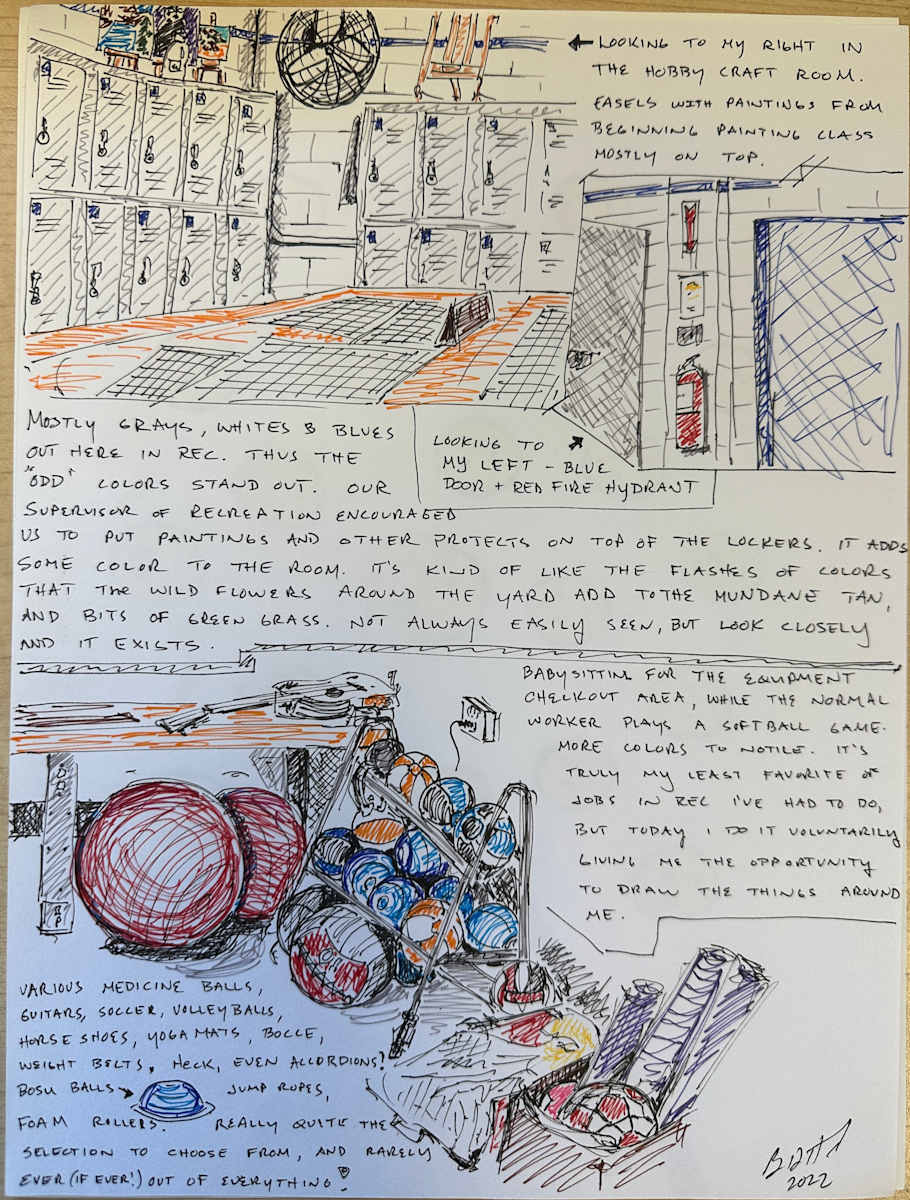 ← LOOKING TO MY RIGHT IN
THE HOBBY CRAFT ROOM.
EASELS WITH PAINTINGS FROM
BEGINNING PAINTING CLASS
MOSTLY ON TOP.
MOSTLY GRAYS, WHITES & BLUES
OUT HERE IN REC. THUS THE
"ODD" COLORS STAND OUT. OUR
SUPERVISOR OF RECREATION ENCOURAGED
US TO PUT PAINTINGS AND OTHER PROTECTS ON TOP OF THE LOCKERS. IT ADDS
SOME COLOR TO THE ROOM. IT'S KIND OF LIKE THE FLASHES OF COLORS
THAT THE WILD FLOWERS AROUND THE YARD ADD TO THE MUNDANE TAN,
AND BITS OF GREEN GRASS. NOT ALWAYS EASILY SEEN, BUT LOOK CLOSELY
AND IT EXISTS.
LOOKING TO
MY LEFT - BLUE
DOOR + RED FIRE HYDRANT
BABYSITTING FOR THE EQUIPMENT
CHECKOUT AREA, WHILE THE NORMAL
WORKER PLAYS A SOFTBALL GAME.
MORE COLORS TO NOTICE. IT'S
TRULY MY LEAST FAVORITE OF
JOBS IN REC I'VE HAD TO DO,
BUT TODAY I DO IT VOLUNTARILY
GIVING ME THE OPPORTUNITY
TO DRAW THE THINGS AROUND
ME.
VARIOUS MEDICINE BALLS,
GUITARS, SOCCER, VOLLEYBALLS,
HORSE SHOES, YOGA MATS, BOCCE,
WEIGHT BELTS, HECK, EVEN ACCORDIONS!
BOSU BALLS → JUMP ROPES,
FOAM ROLLERS. REALLY QUITE THE
SELECTION TO CHOOSE FROM, AND RARELY
EVER (IF EVER!) OUT OF EVERYTHING!
2022